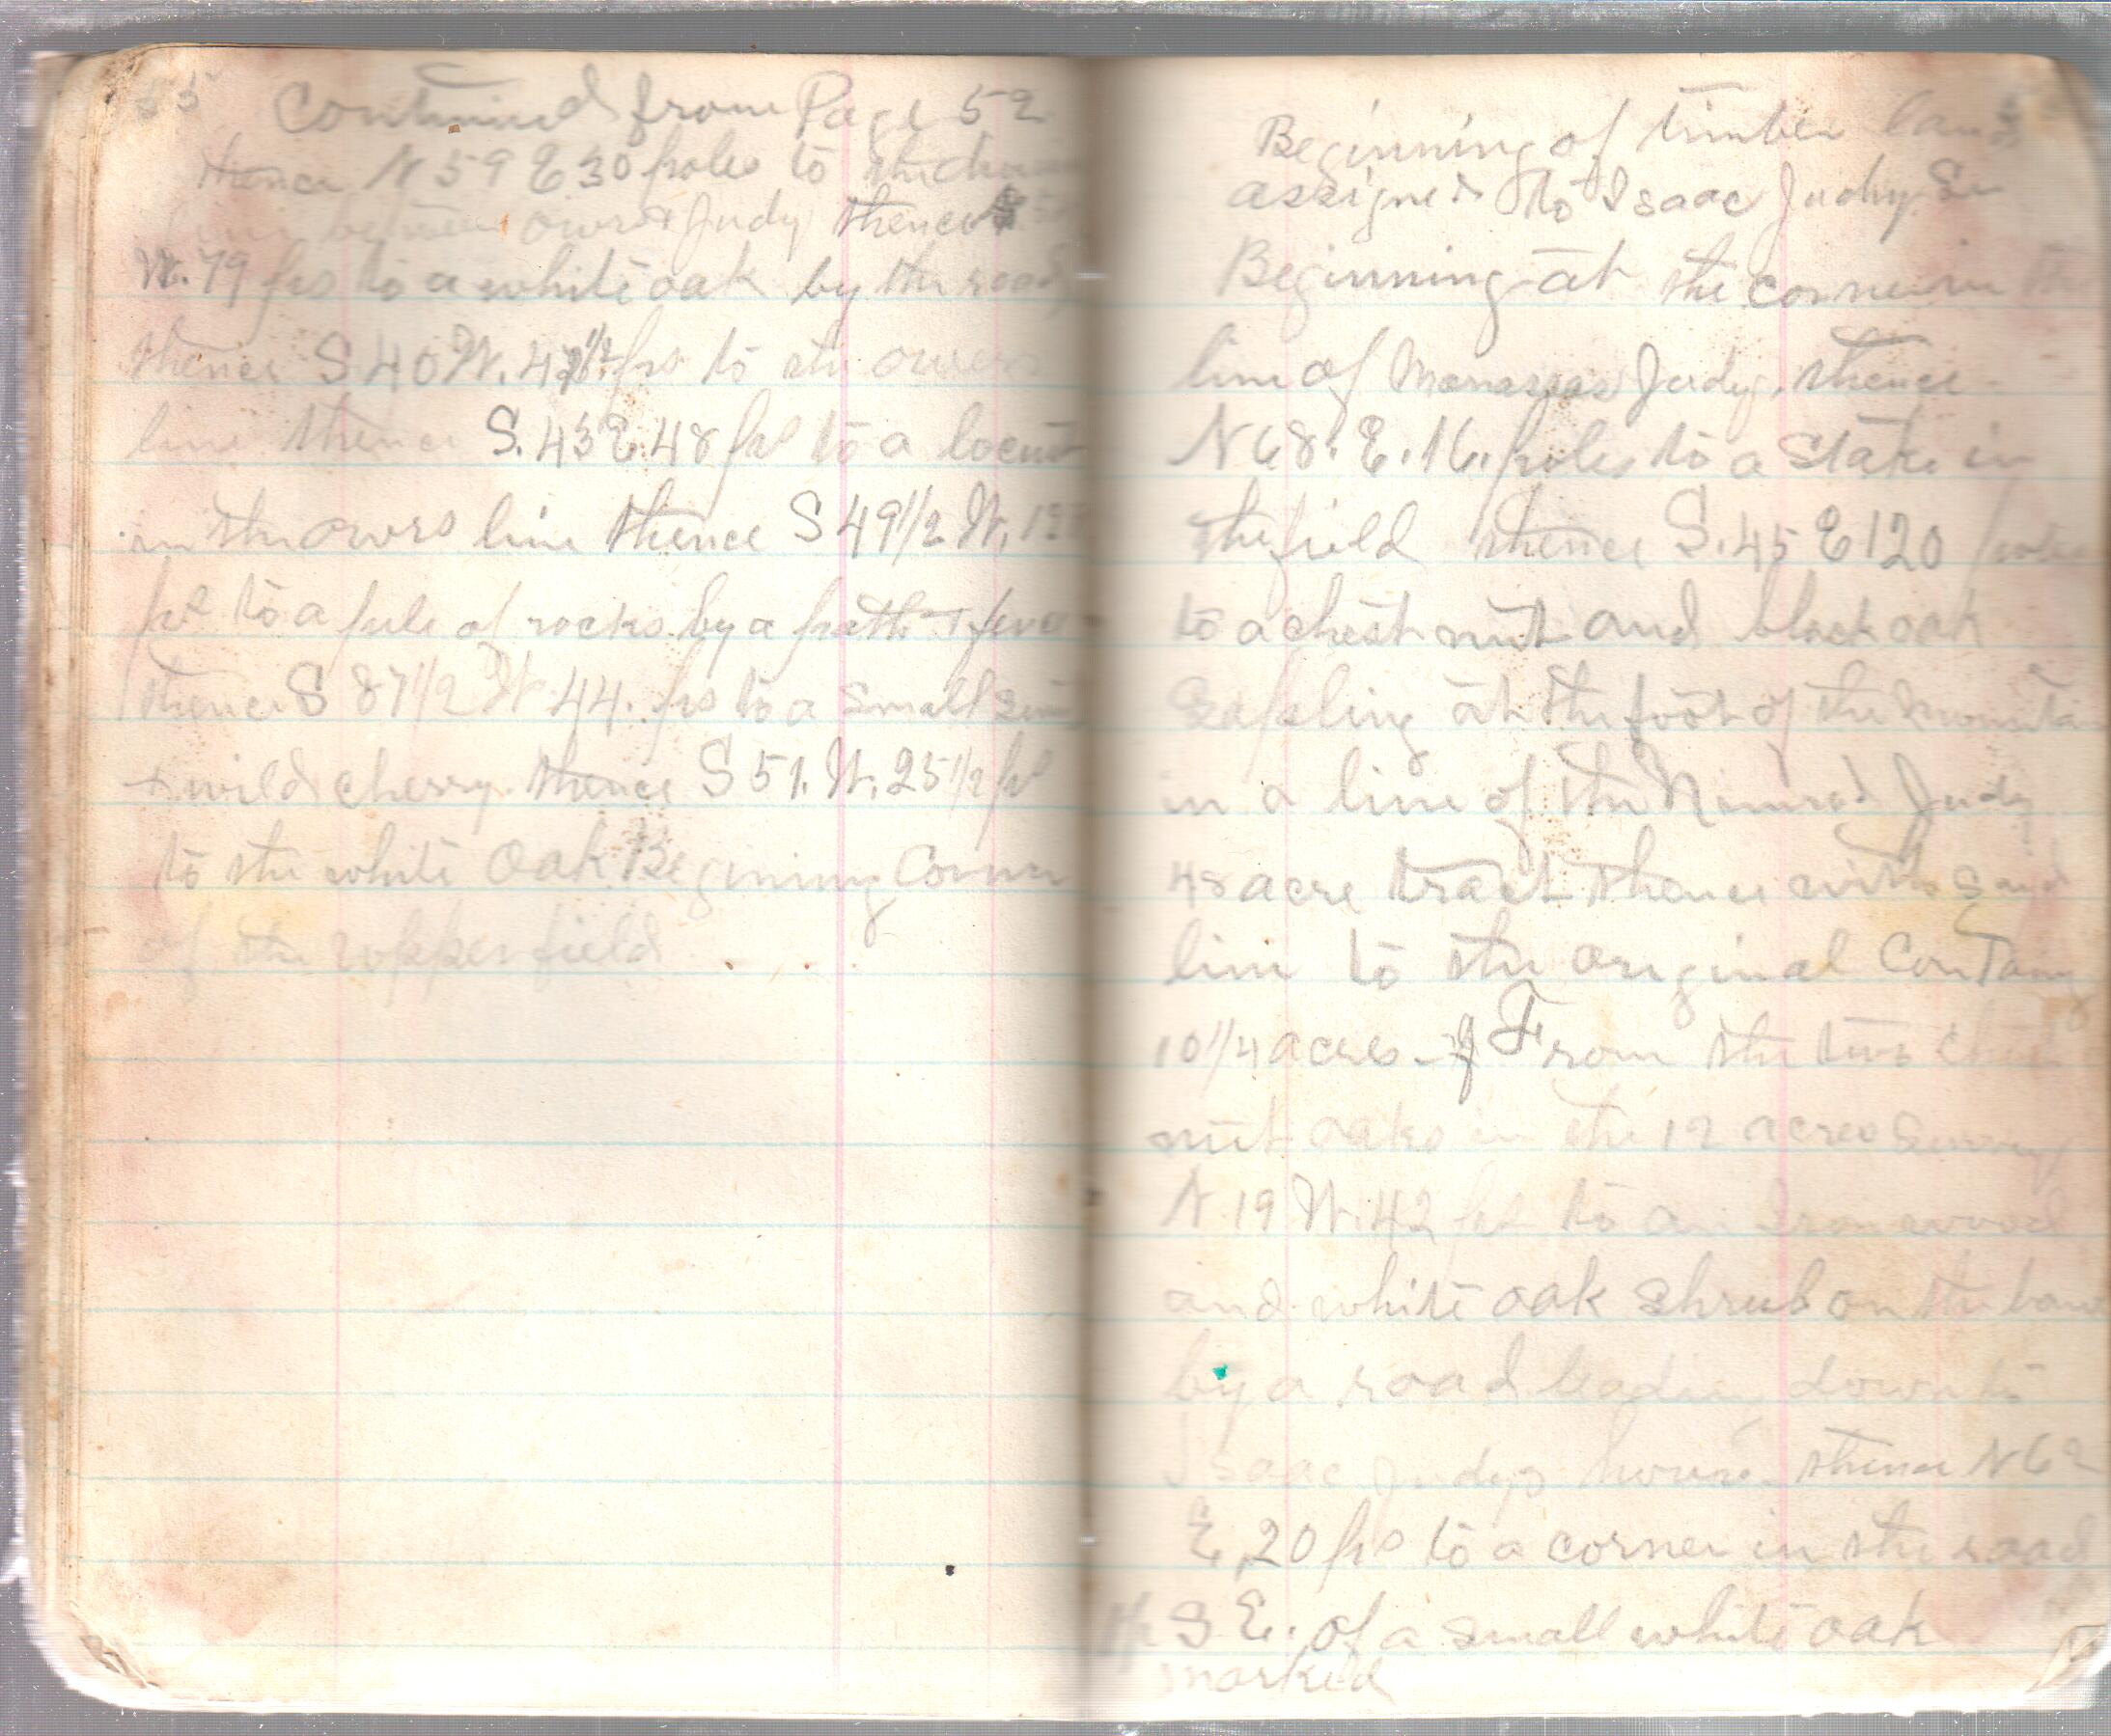 55 Continued from Page 52
thence N 59 E 30 poles to the
line between owrs & Judy thence S
W. 79 ps to a white oak by the road
thence S 40 W. 42 1/2 ps to the owers
line thence S. 43 E. 48 ps to a locust
in the owrs line thence S 49 1/2 W.
ps to a pile of rocks by a path &
thence S 87 1/2 W 44. ps to a small
& wild cherry thence S 51. W. 25 1/2 ps
to the white Oak Begining Corner
of the field
Beginning of timber land
assigned to Isaac Judy Sr
Beginning at the corner in the
line of Manassas Judy, thence
N 68. E. 16. poles to a Stake in
the field thence S. 45 E 120 poles
to a chestnut and black oak
Sapling at the foot of the mountain
in a line of the Nimrod Judy
48 acre tract thence with said
line to the original Containg
10 1/4 acres From the two chest
nut oaks in the 12 acres Survey
N. 19 W. 42 ps to an Ironwood
and white oak shrub on the bank
by a road leading down to
Isaac Judys house thence N 62
E, 20 ps to a corner in the road
S E. of a small white oak
marked